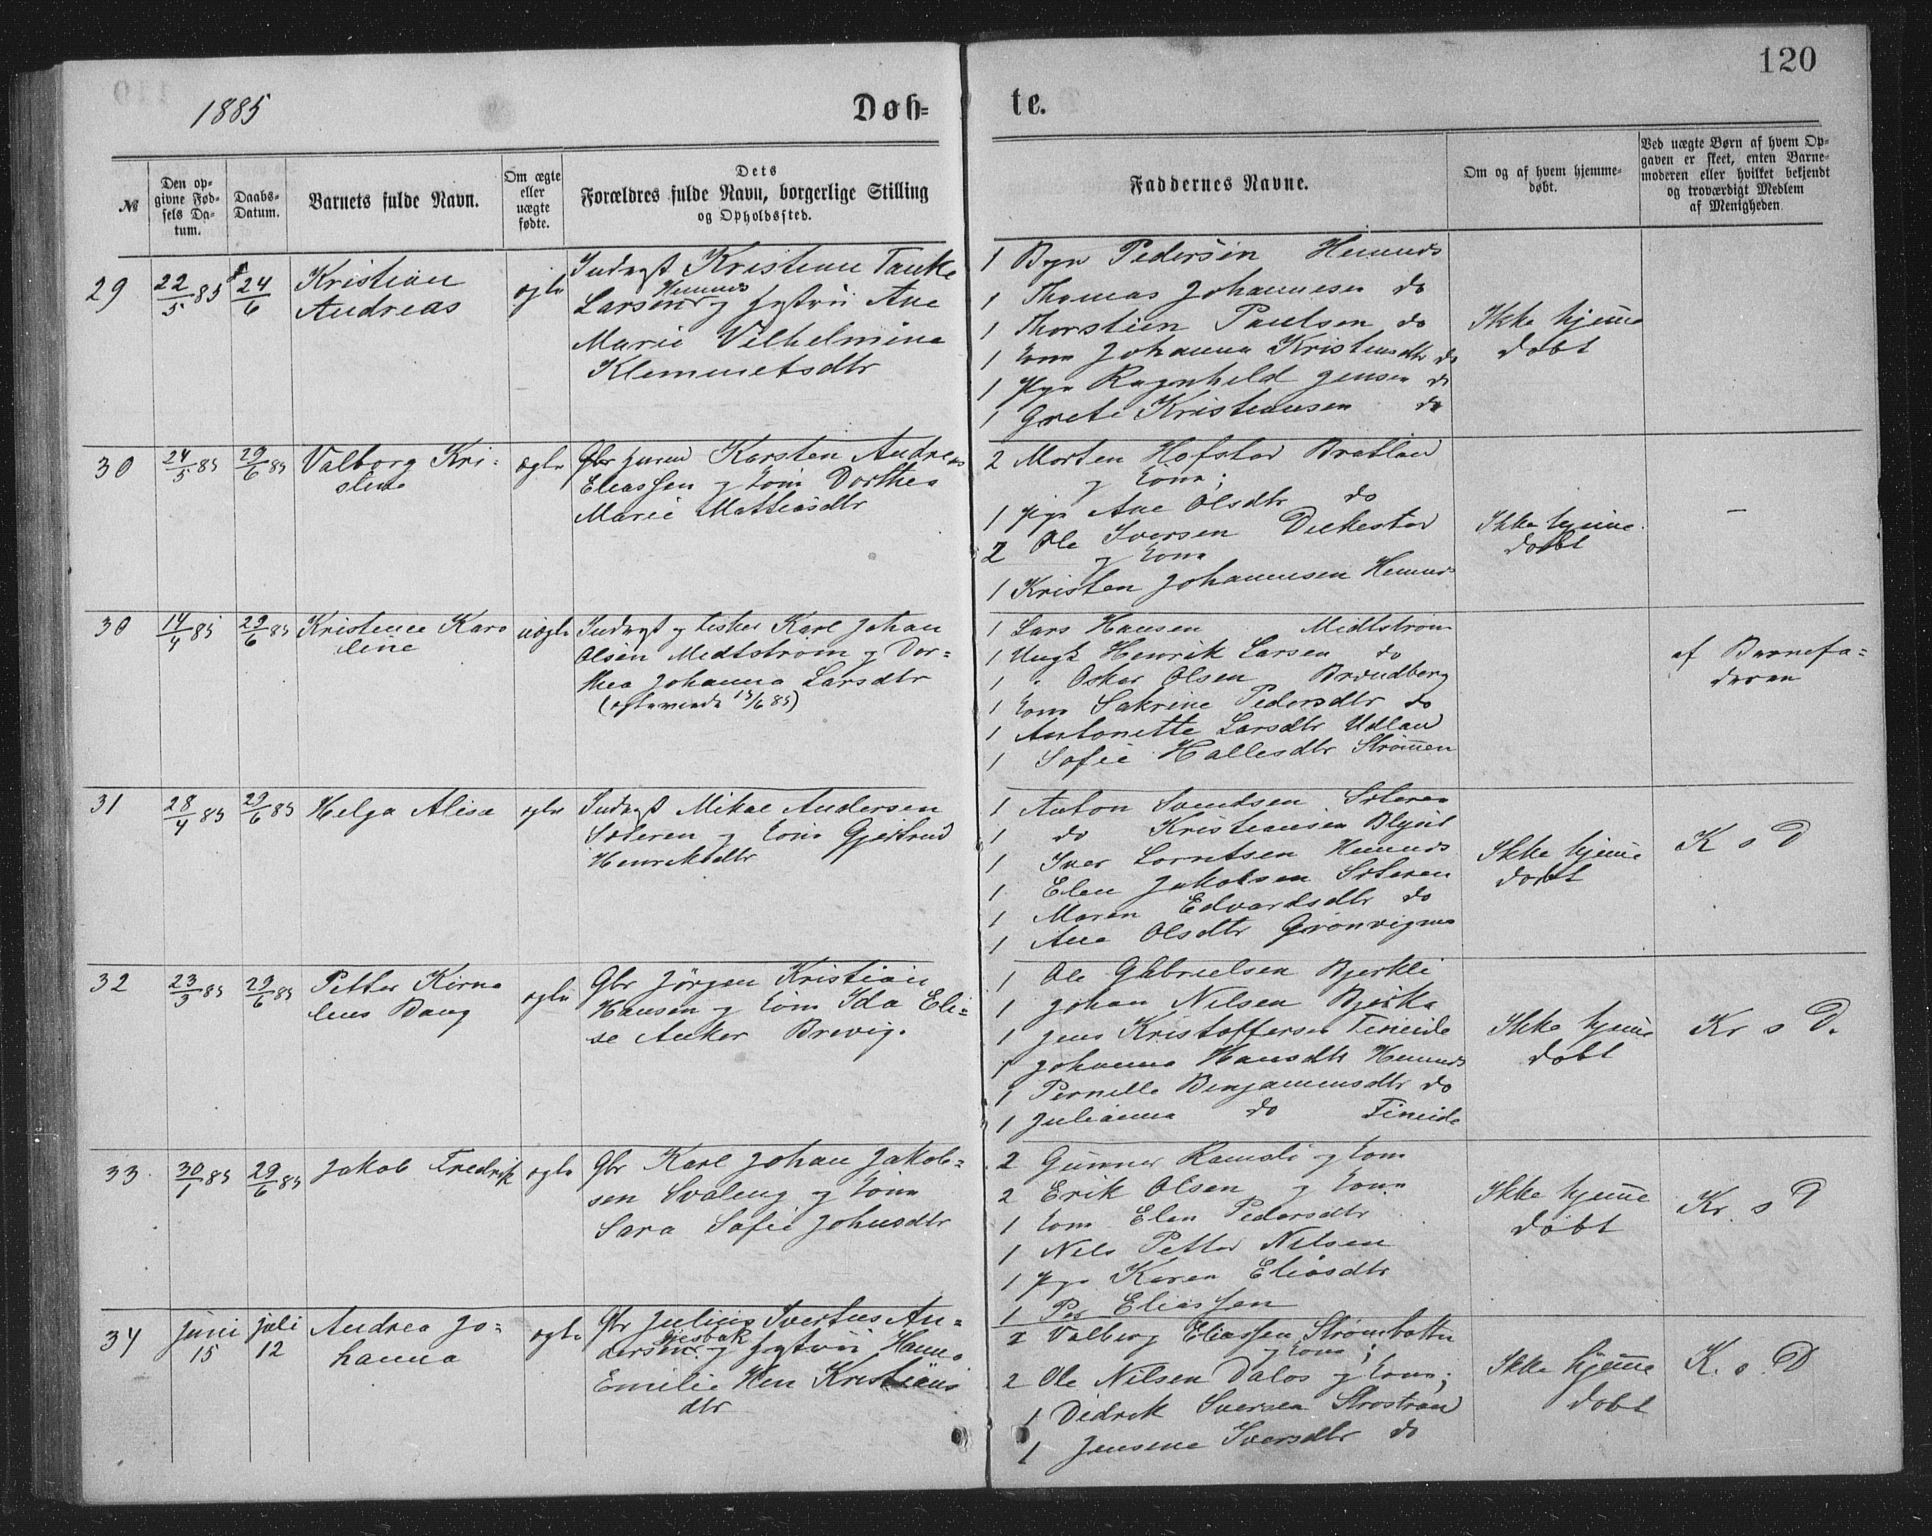 1885
Døb=
te.
120
№
Den op-
givne Fød-
sels Da-
tum.
Daabs-
Datum.
Barnets fulde Navn.
Om ægte
eller
uægte
fødte.
Dets
Forældres fulde Navn, borgerlige Stilling
og Opholdssted.
Faddernes Navne.
Om og af hvem hjemme-
døbt.
Ved uægte Børn af hvem Op-
gaven er skeet, enten Barne-
moderen eller hvilket bekjendt
og troværdigt Medlem
af Menigheden
29 22/5 85 24/6 Kristian
Andreas
ægte
Indrgst Kristian Tanke
Hemnes
Larsen og hustru Ane
Marie Vilhelmina
Klemmetsdtr
1 Pedersen Hemnes
1 Thomas Johannesen do
1 Thorstein Paulsen do
1 Kona Johanna Kristensdtr do
1 Pige Ragnhild Jensen do
1 Grete Kristiansen do
Ikke hjeme
døbt
30 24/5 85 29/6 85 Valborg Kri-
stine
ægte
Gbr Karsten Andreas
Eliassen og Kone Dorthea
Marie Mattiasdtr
2 Morten Hofstad Bratland
og Kona;
1 Pige Ane Olsdtr do
2 Ole Iversen
og Kona
1 Kristen Johannesen Hemnes
Ikke hjeme
døbt
–
30 14/4 85 29/6 85 Kristine Karo
line
uægte
Indrgst og fisker Karl Johan
Olsen Midtstrøm og Dor=
thea Johanna Larsdtr
(ægteviede 15/6 85)
1 Lars Hansen Midtstrøm
1 Ungk Henrik Larsen do
1 " Oskar Olsen Brændberg
1 Kona Sakrine Pedersdtr do
1 Antonette Larsdtr Utland
1 Sofie Hallesdtr Strømmen
af Barnefa=
deren
31 28/4 85 29/6 85 Helga Alisa ægte
Indrgst Mikal Andersen
Sæteren og Kona Gjertrud
Henriksdtr
1 Anton Svendsen Sæteren
1 do Kristiansen
1 Iver Lorntsen Hemnes
1 Elen Jakobsen Sæteren
1 Maren Edvardsdtr do
1 Ane Olsdtr Grønvignes
Ikke hjeme
døbt
K o D
32 23/5 85 29/6 85 Petter Korne
lius Bang
ægte
Gbr Jørgen Kristian
Hansen og Kona Ida Eli-
se Anker Brevig.
1 Ole Gabrielsen Bjerkli
1 Johan Nilsen Bjerka
1 Jens Kristoffersen Fineide
1 Johanna Hansdtr Hemnes
1 Pernille Benjaminsdtr do
1 Julianna do Fineide
Ikke hjeme
døbt
Kr o D.
33 30/1 85 29/6 85 Jakob Fredrik ægte
Gbr Karl Johan Jakob=
sen Svaleng og Kona
Sara Sofie Johnsdtr
2 Gunner Ramsli og Kona
2 Erik Olsen og Kona
1 Kona Elen Pedersdtr
1 Nils Petter Nilsen
1 Pige Karen Eliasdtr
1 Per Eliassen
Ikke hjeme
døbt
Kr. o D
34 Juni
15
juli
12
Andrea Jo-
hanna
ægte
Gbr Julius Sivertus An-
dersen og hustru Hanna
Emilie Kristians
dtr
2 Valberg Eliassen Strømbotten
og Kona;
2 Ole Nilsen Dalos og Kona;
1 Didrik Iversen
1 Jensine Iversdtr do
Ikke hjeme
døbt
K. o. D